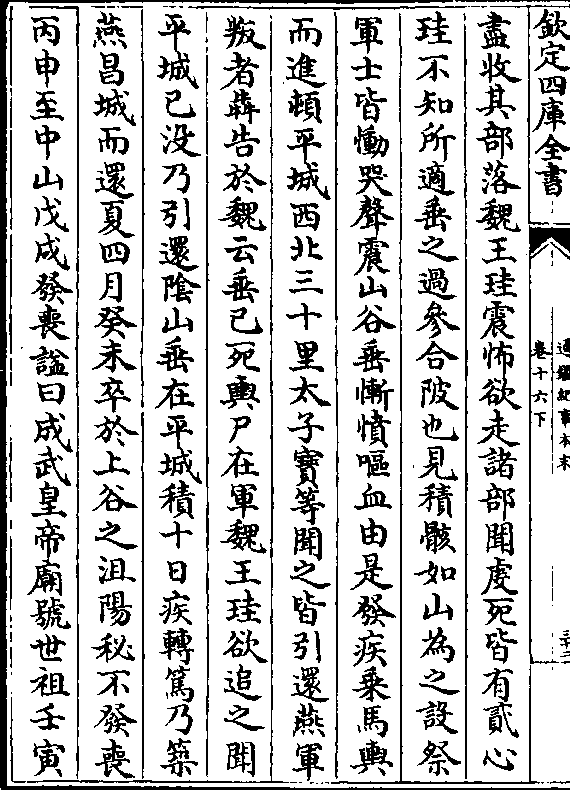 欽定四庫全書
通鑑紀事本末
卷十六下
盡收其部落魏王珪震怖欲走諸部聞虔死皆有貳心
珪不知所適垂之過參合陂也見積骸如山為之設祭
軍士皆慟哭聲震山谷垂慚憤嘔血由是發疾乗馬輿
而進頓平城西北三十里太子寶等聞之皆引還燕軍
叛者犇告於魏云垂已死輿尸在軍魏王珪欲追之聞
平城已没乃引還陰山垂在平城積十日疾轉篤乃築
燕昌城而還夏四月癸未卒於上谷之沮陽秘不發喪
丙申至中山戊戌發喪諡曰成武皇帝廟號世祖壬寅